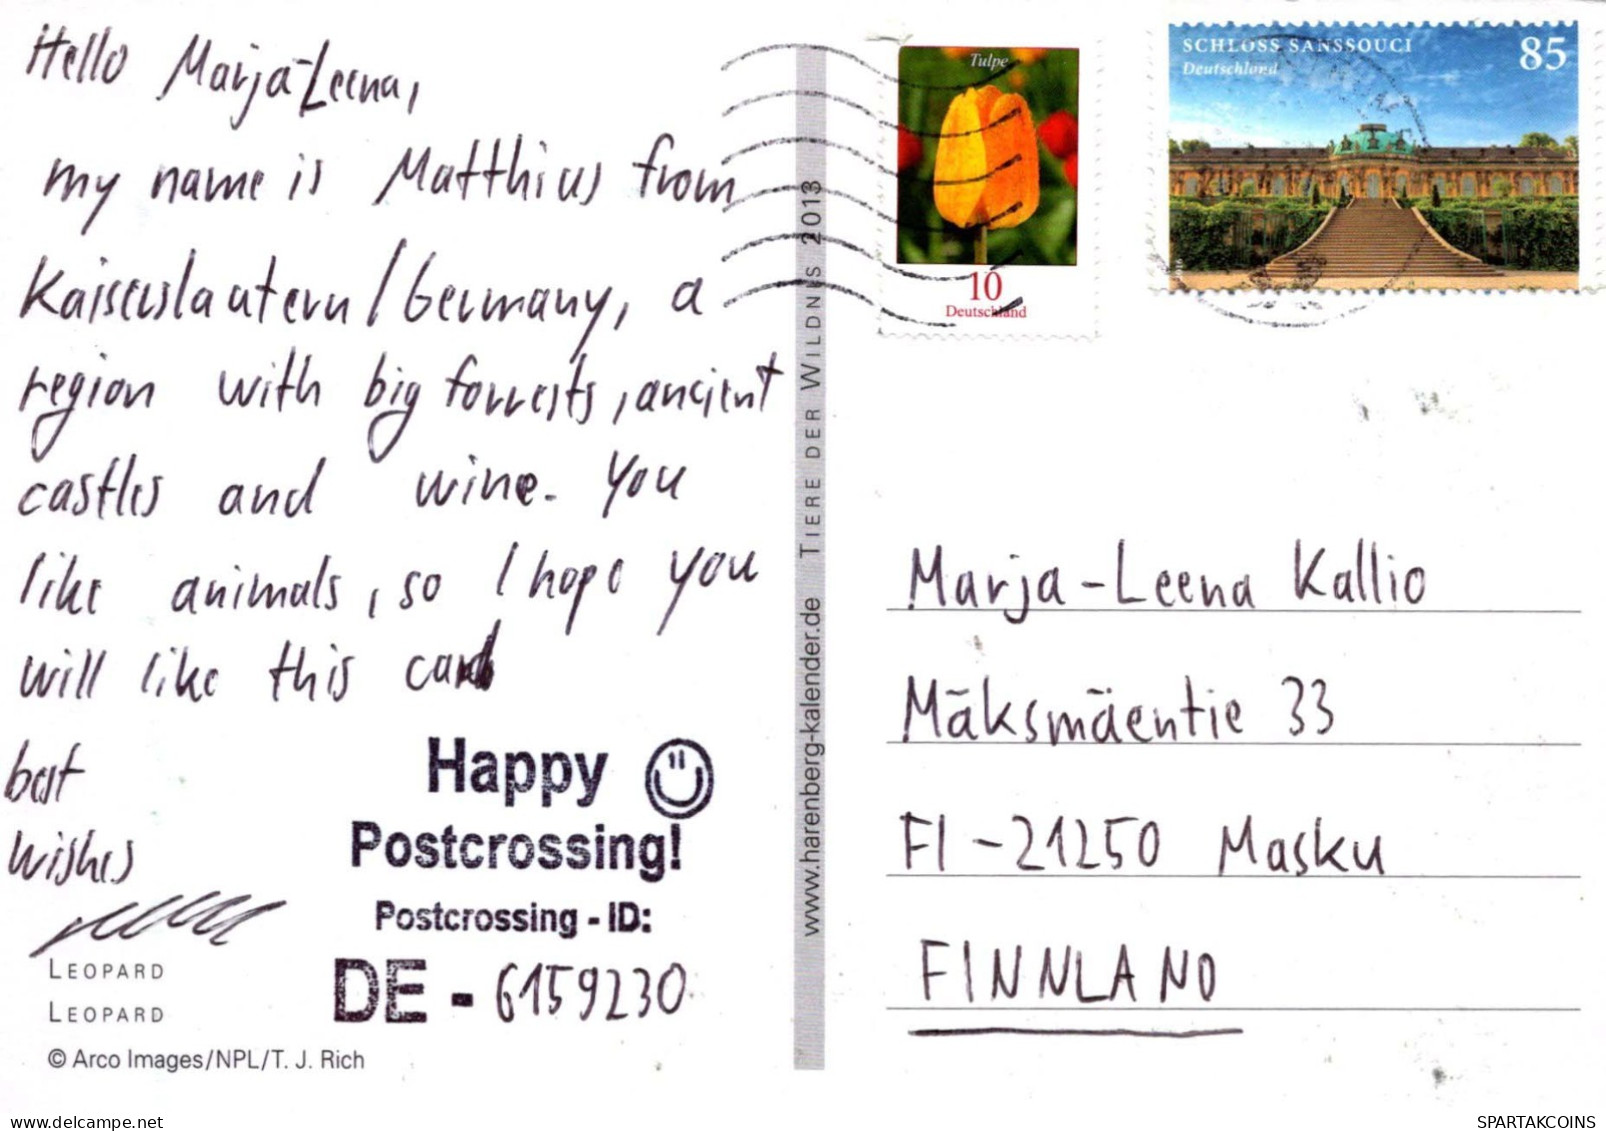 Hello Marja-Leena,
my name is Matthias from
Kaiserslautern/Germany, a
region with big forrests, ancient
castles and wine. You
like animals, so I hope you
will like this card
best
wishes
Happy
Postcrossing!
Postcrossing - ID:
DE - 6159230
LEOPARD
LEOPARD
© Arco Images/NPL/T. J. Rich
www.harenberg-kalender.de TIERE DER WILDNIS 2013
Tulpe
10
Deutschland
SCHLOSS SANSSOUCI
85
Deutschland
2016
Marja-Leena Kallio
Mäksmäentie 33
FI-21250 Masku
FINNLAND
hippostcard.com